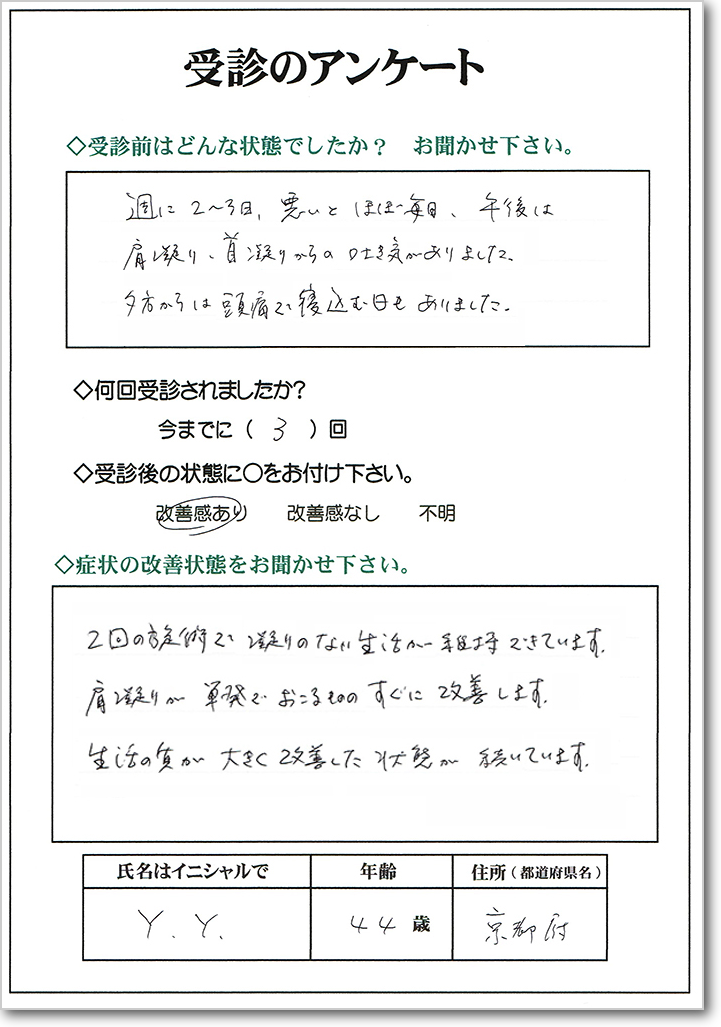 受診のアンケート
◇受診前はどんな状態でしたか？　お聞かせ下さい。
週に2〜3日、悪いとほぼ毎日、午後は
肩凝り、首凝りからの吐き気がありました。
夕方からは頭痛で寝込む日もありました。
◇何回受診されましたか?
今までに（ 3 ）回
◇受診後の状態に○をお付け下さい。
改善感あり　改善感なし　不明
◇症状の改善状態をお聞かせ下さい。
2回の施術で凝りのない生活が維持できています。
肩凝りが単発でおこるもののすぐに改善します。
生活の質が大きく改善した状態が続いています。
氏名はイニシャルで　年齢　住所（都道府県名）
Y.Y.　44歳　京都府